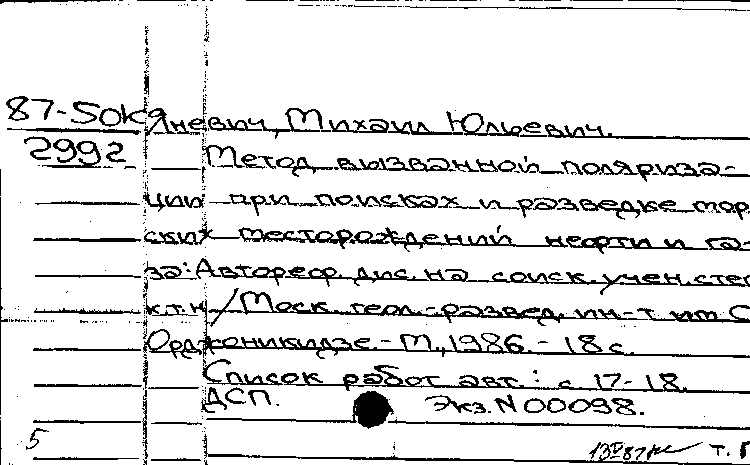 87-5ОКД
Яневич, Михаил Юльевич.
2992
Метод вызванной поляриза-
ции при поисках и разведке мор
ских месторождений нефти и га-
за: Автореф. дис. на соиск. учен. степ
к.т.н. / Моск. геол.-развед. ин-т им С
Орджоникидзе. - М., 1986. - 18 с.
Список работ авт.: с. 17-18.
ДСП. Экз. N 00098.
5
т.